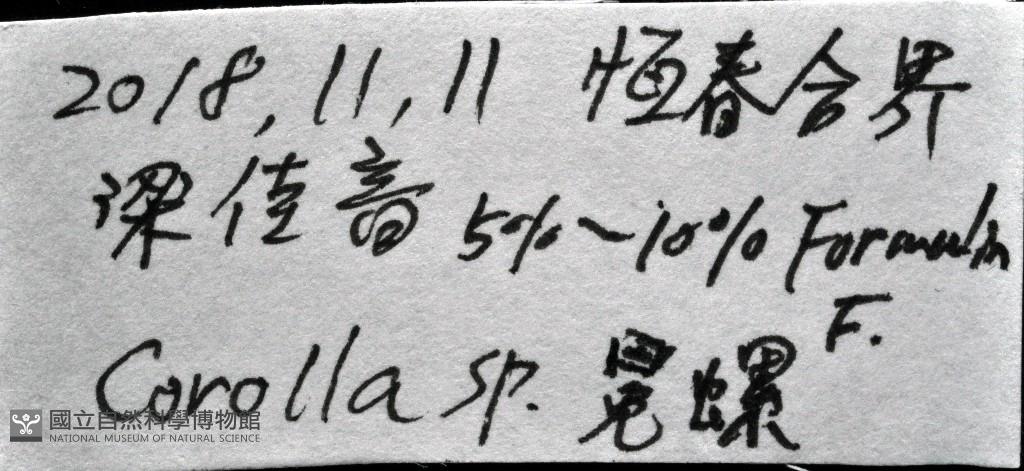 2018,11,11 恆春合界
梁佳音 5%~10% Formalin
F.
Corolla sp. 冕螺
國立自然科學博物館
NATIONAL MUSEUM OF NATURAL SCIENCE